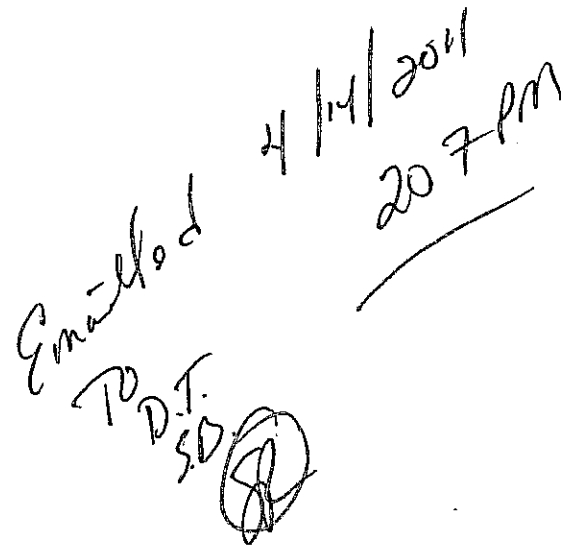 Emailed 4/14/2011
207 PM
TO D.T.
S.D.
SR